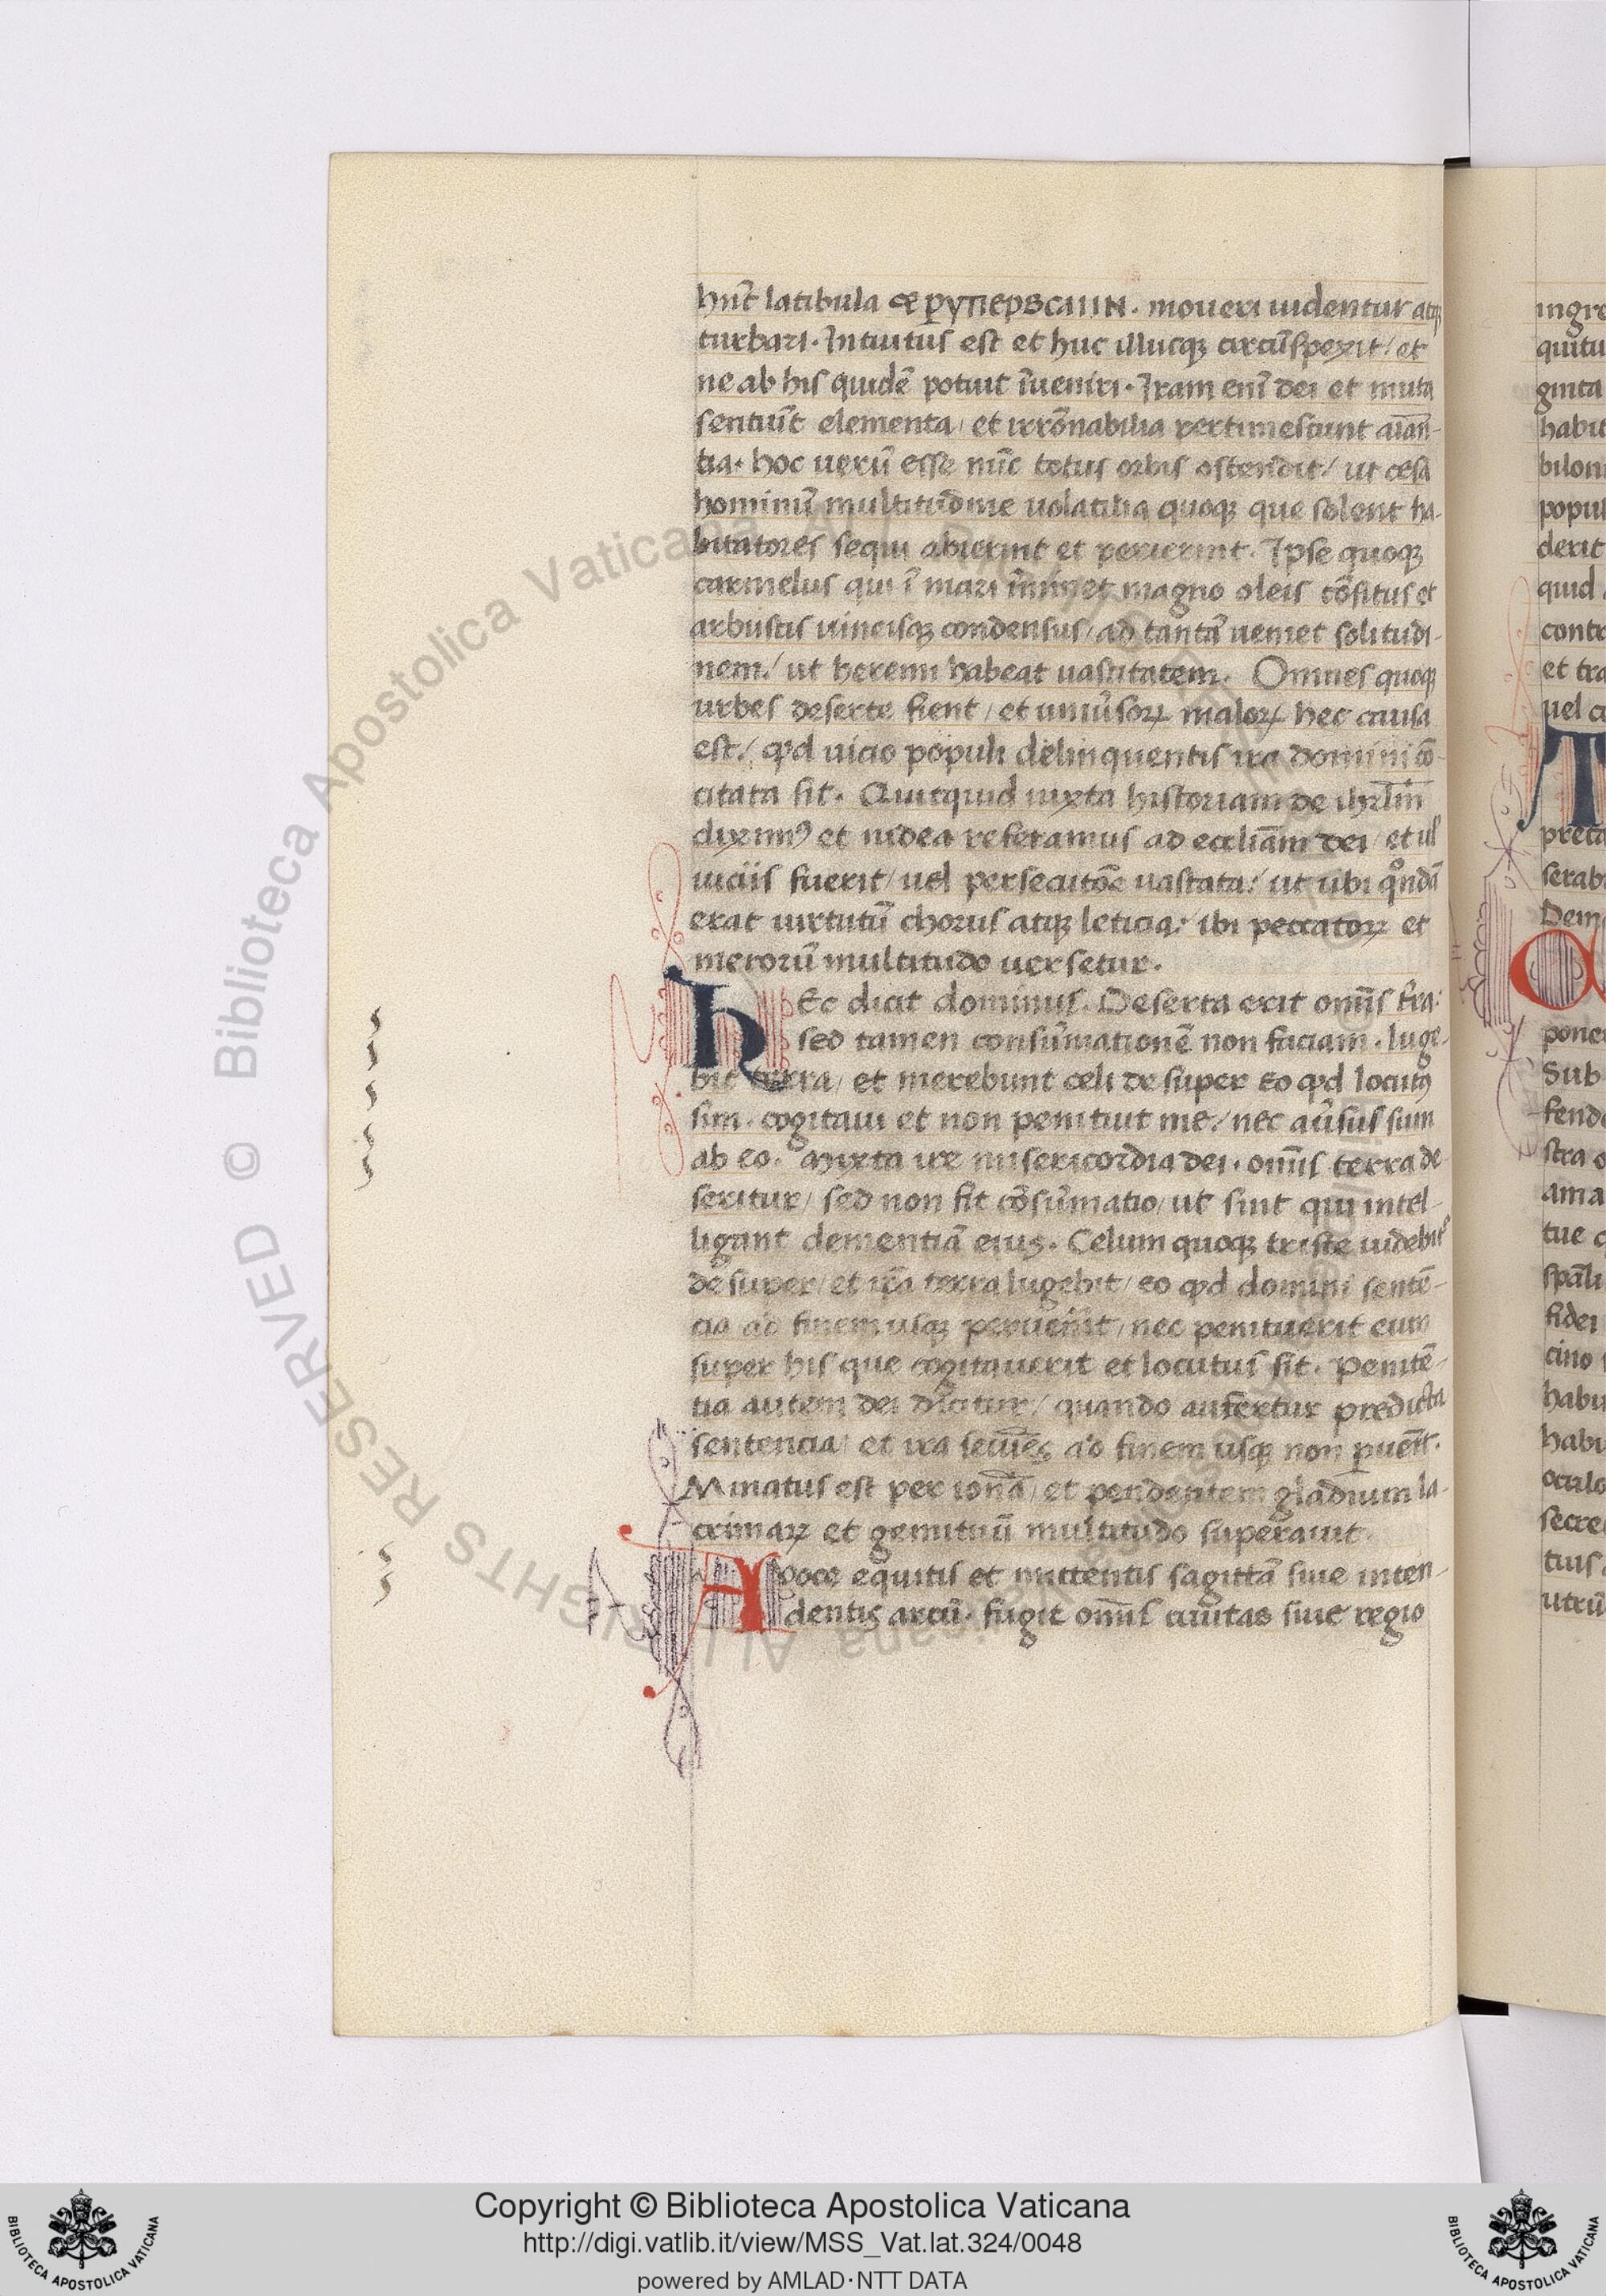 hn̄t latibula œ p̱ynepscaiin. moueri uidentur atq;
turbari. Intuitus est et huc illucq; circūspexit / et
ne ab his quidē potuit īueniri. Iram enī dei et muta
sentiūt elementa / et irrōnabilia pertimescunt aīan-
tia. hoc uerū esse nūc totus orbis ostendit / ut cesa
hominū multitudine uolatilia quoq; que solent ha-
bitatores sequi abierint et perierint. Ipse quoq;
carmelus qui ī mari īminet magno oleis cōsitus et
arbustis uineisq; condensus / ad tantā ueniet solitudi-
nem / ut heremi habeat uastitatem. Omnes quoq;
urbes deserte fient / et uniūsoꝝ maloꝝ hec causa
est / qd uicio populi delinquentis ira domini cō-
citata sit. Quitquid iuxta historiam de ihrlm̄
diximꝰ et iudea referamus ad eccliām dei / et ul'
uiciis fuerit / uel persecutōe uastata / ut ubi qōndā
erat uirtutū chorus atq; leticia / ibi peccatoꝝ et
merorū multitudo uersetur.
hEc dicit dominus. Deserta erit omīs tr̄a:
sed tamen consūmationē non faciam. luge-
bit terra / et merebunt celi de super eo qd locutꝰ
sim. cogitaui et non penituit me / nec aūsus sum
ab eo. Mixta ire misericordia dei. omīs terra de-
seritur / sed non fit cōsūmatio / ut sint qui intel-
ligant clementiā eius. Celum quoq; triste uidebit̄
de super / et ip̄a terra lugebit / eo qd domini sentē-
cia ad finem usq; peruenīt / nec penituerit eum
super his que cogitauerit et locutus sit. Penitē-
tia autem dei dicitur / quando aufertur predicta
sentencia / et ira seuiēs ad finem usq; non ꝑuenīt.
Minatus est per ionā / et pendentem gladium la-
crimaꝝ et gemituū multitudo superauit
A uoce equitis et mittentis sagittā siue inten-
dentis arcū. fugit omīs ciuitas siue regio
ingre
quitu
ginta
habit
bilon
popul
derit
quid
contr
et tra
uel a
T
preta
serab
Dem
a
pone
Sub
fend
stra
ama
tue
spāli
fidei
cino
habu
habu
oculo
secre
tuis
utrū
© Biblioteca Apostolica Vaticana
ALL RIGHTS RESERVED
Copyright © Biblioteca Apostolica Vaticana
http://digi.vatlib.it/view/MSS_Vat.lat.324/0048
powered by AMLAD·NTT DATA
BIBLIOTECA APOSTOLICA VATICANA
BIBLIOTECA APOSTOLICA VATICANA